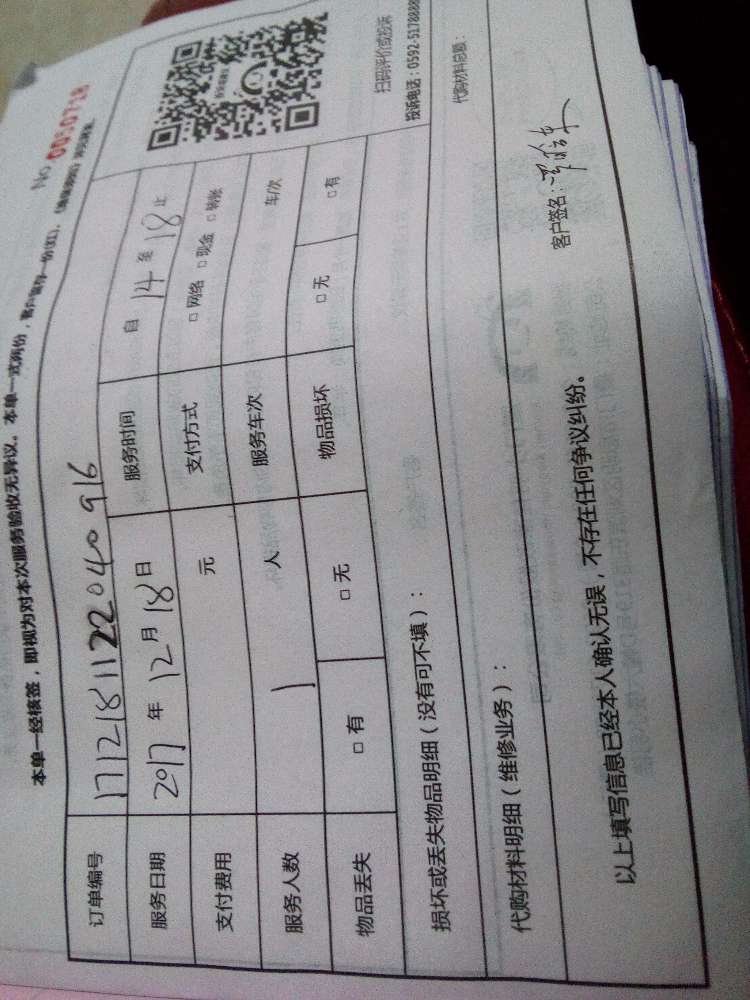 No 0050718
本单一经核签，即视为对本次服务验收无异议。本单一式两份，客户留存一份(红)，
订单编号 171218112204 0916
服务日期 2017 年 12 月 18 日 服务时间 自 14 至 18 止
支付费用 元 支付方式 □ 网络 □ 现金 □ 转账
服务人数 1 人 服务车次 车/次
物品丢失 □ 有 □ 无 物品损坏 □ 无 □ 有
扫码评价或投诉
投诉电话：0592-5178888
损坏或丢失物品明细（没有可不填）：
代购材料明细（维修业务）： 代购材料总额：
以上填写信息已经本人确认无误，不存在任何争议纠纷。
客户签名：